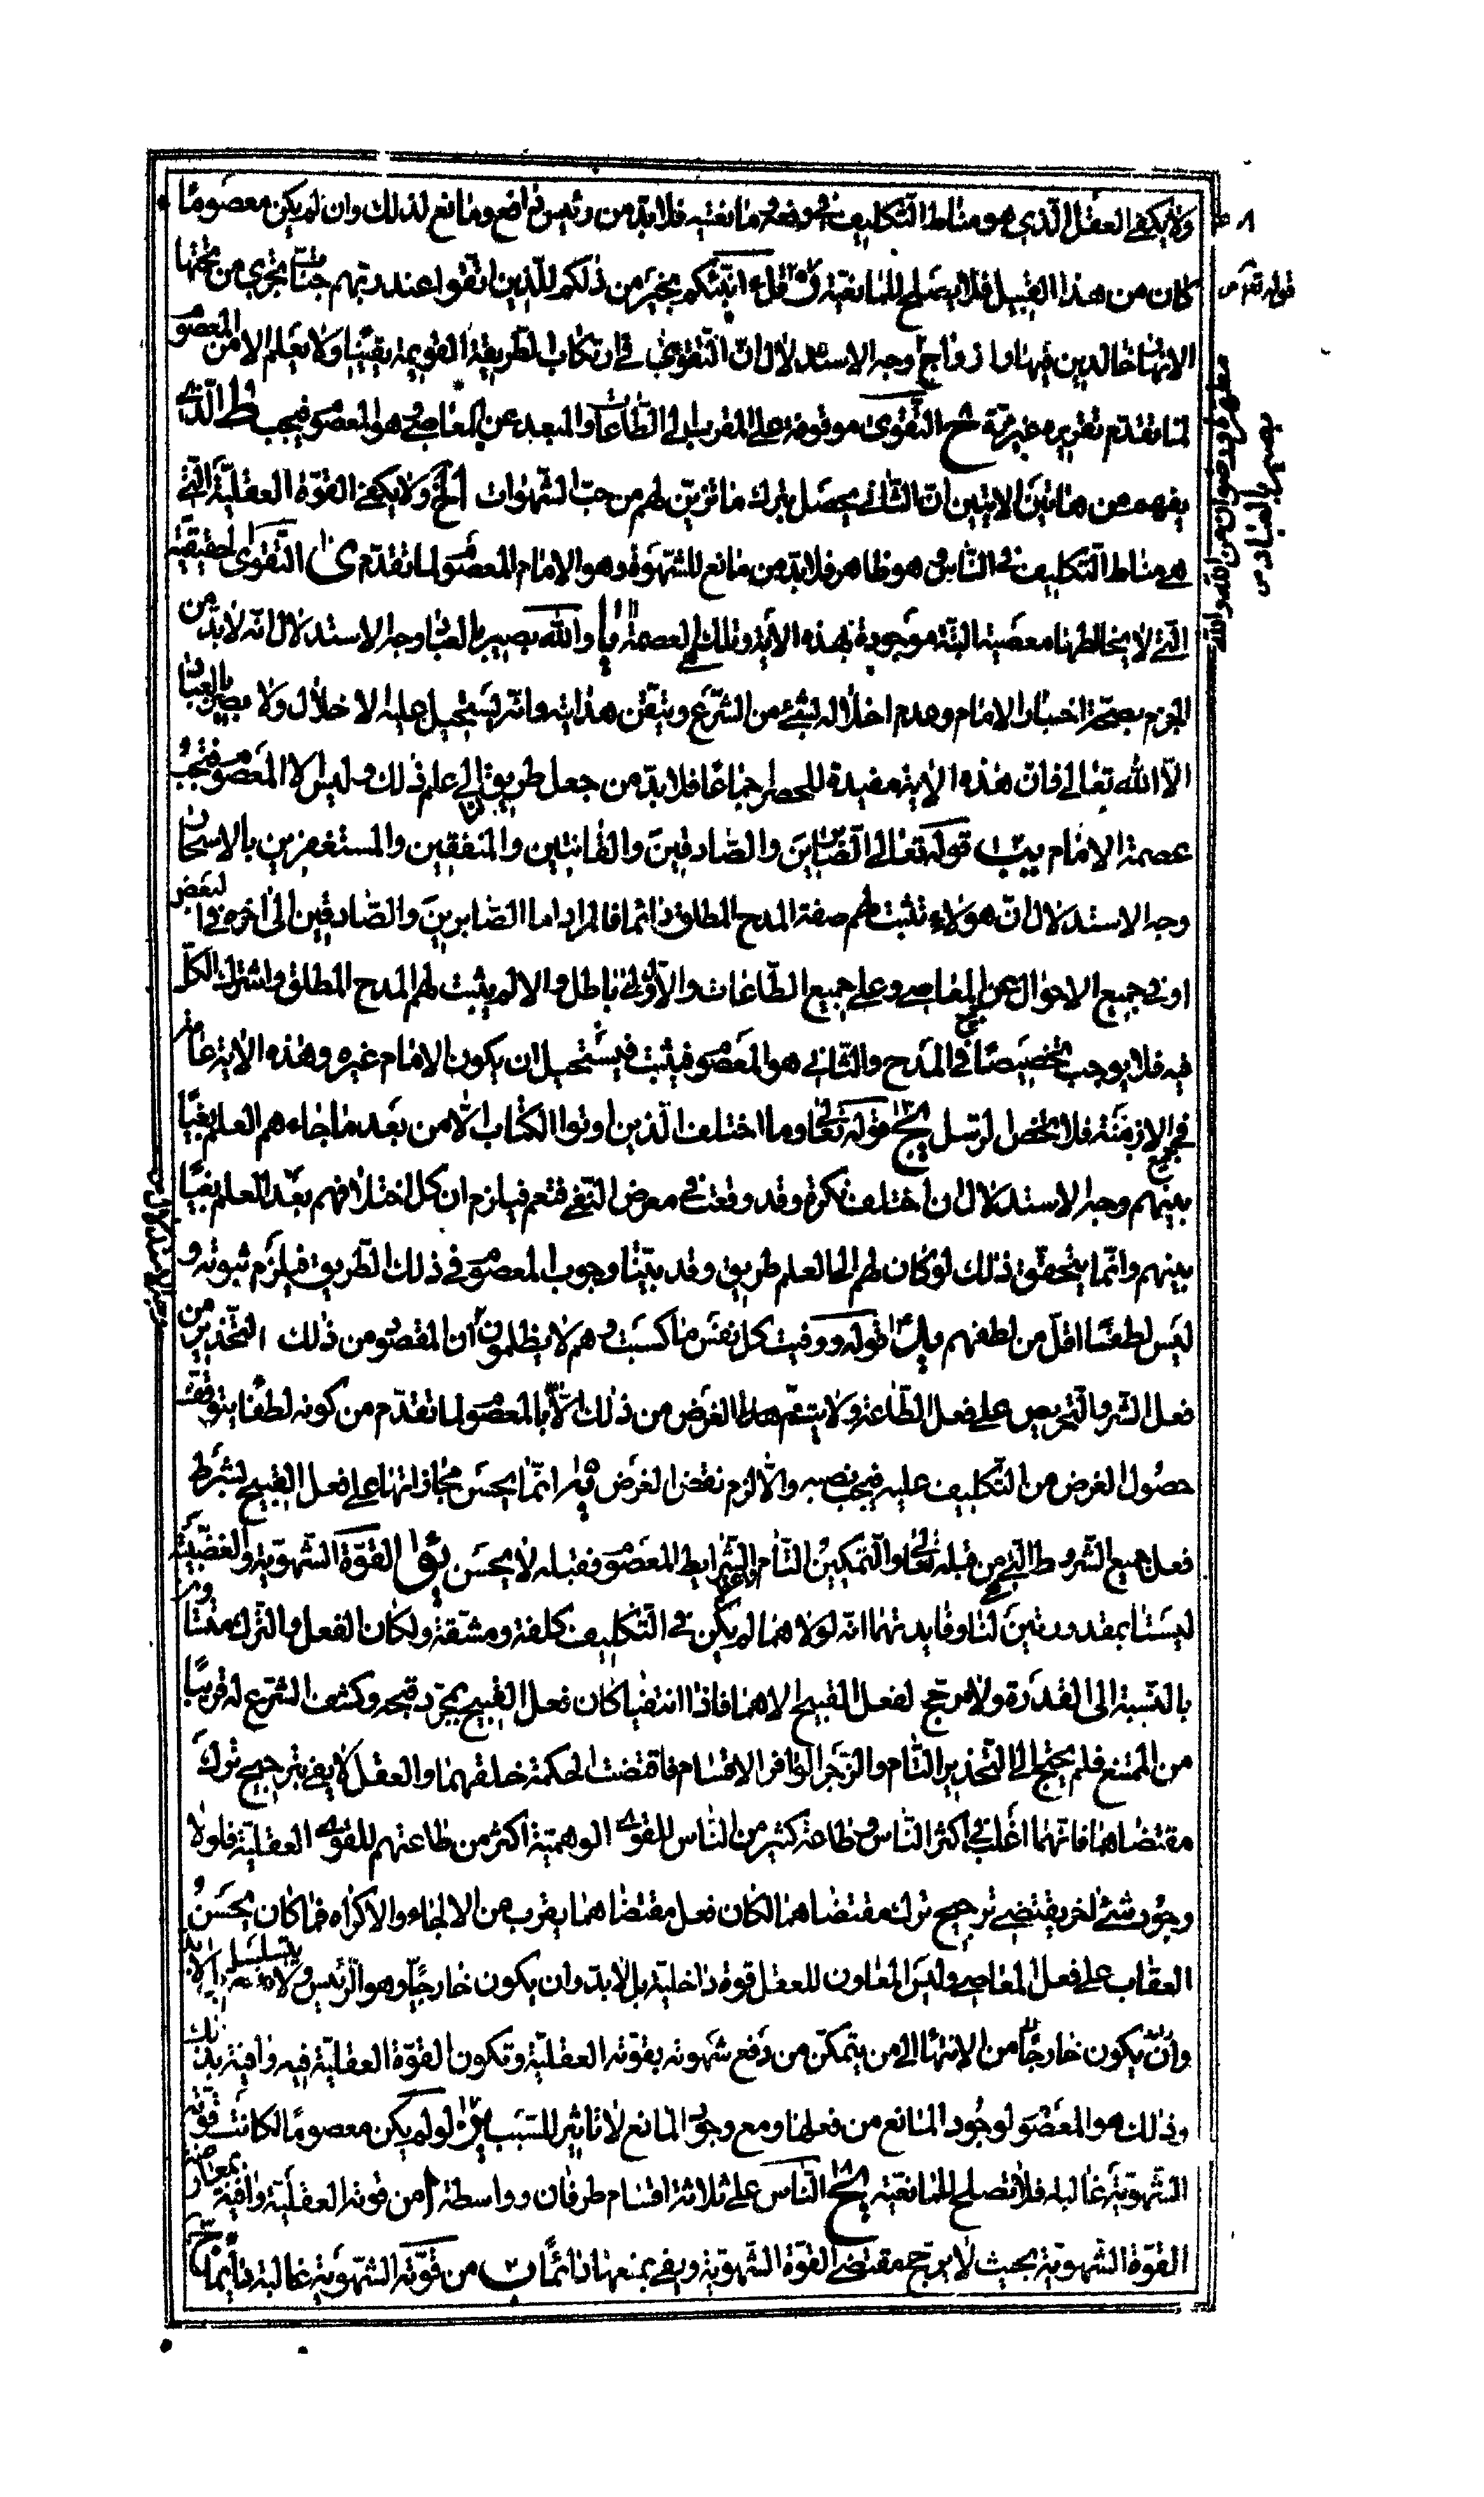 ولا يكفى العقل الّذي هو مناط التّكليف فى دفعه ما نعتبه فلا بدّ من رئيس رافع ومانع لذلك وان لم يكن معصومًا
كان من هذا القبيل فلا يصلح للمانعيّة قل اؤنبّئكم بخير من ذلكم للّذين اتّقوا عند ربّهم جنات تجري من تحتها
الانهار خالدين فيها وازواج وجه الاستدلال ان التّقوى فى ارتكاب الطّريقة القويمة يقينا ولا يعلم الا من المعصو
لما تقدّم تقريره غير مرّة التّقوى موقوفة على المقرب الى الطّاعات والمبعد عن المعاصى هو المعصو فيجب الّذي
يفهم من هاتين الايتين انّ الثّانى يحصل بترك ما تزيّن لهم من حبّ الشّهوات الخ ولا يكفى القوّة العقليّة الّتى
هى مناط التّكليف فى النّاس وهو ظاهر فلا بدّ من مانع للشّهوة وهو الامام المعصو لما تقدّم التّقوى الحقيقيّة
الّتى لا يخالطها معصية البتّة موجودة بهذه الاية وتلك العصمة والله بصير بالعبا وجه الاستدلال انّه لا بدّ من
الجزم بصحّة اخبار الامام وعدم اخلاله بشئ من الشّرع ويتقن هذايته وانّه يستحيل عليه الاخلال ولا بصير بالعباد
الّا الله تعالى فانّ هذه الاية مفيدة للحصر اجماعًا فلا بدّ من جعل طريق الى علم ذلك وليس الا المعصو فتجب
عصمة الامام قوله تعالى الصّابرين والصّادقين والقانتين والمنفقين والمستغفرين بالاسحا
وجه الاستدلال انّ هولاء تثبت لهم صفة المدح المطلق دائما فالمراد اما الصّابرين والصّادقين الى اخره فى البعض
او فى جميع الاحوال عن المعاصى وعلى جميع الطّاعات والاوّل باطل والا لم يثبت لهم المدح المطلق واشترك الكلّ
فيه فلا يوجب تخصيصًا فى المدح والثّانى هو المعصو فيثبت فيستحيل ان يكون الامام غيره وهذه الاية عامّة
فى جميع الازمنة فلا يختص الرّسل قوله تعالى وما اختلف الّذين اوتوا الكتاب الّا من بعد ما جاءهم العلم بغيًا
بينهم وجه الاستدلال ان اختلف نكرة وقد وقعت فى معرض النّفى فتعم فيلزم ان كل اختلافهم بعد العلم بغيًا
بينهم وانّما يتحقّق ذلك لو كان لهم الى العلم طريق وقد بيّنّا وجوب المعصو فى ذلك الطّريق فيلزم ثبوته و
ليس لطفنا اقلّ من لطفهم قوله ووفيت كل نفس ما كسبت وهم لا يظلمون ان المقصو من ذلك التّحذير من
فعل الشّر والتّحريص على فعل الطّاعة ولا يتم هذا الغرض من ذلك الّا بالمعصو لما تقدّم من كونه لطفًا يتوقّف
حصول الغرض من التّكليف عليه فيجب نصبه والّا لزم نقض الغرض انّما يحسن مجازاتها على فعل القبيح بشرط
فعل جميع الشّروط الّتى من قبله تعالى والتّمكين التّام والشّرايط المعصو فقبله لا يحسن القوّة الشّهويّة والغضبيّة
ليستا بمقدورتين لنا وفايدتهما انّه لولاهما لم يكن فى التّكليف كلفة ومشقّة ولكان الفعل والتّرك متساو
بالنّسبة الى القدرة ولا مرجح لفعل القبيح الا هما فاذا انتفيا كان فعل القبيح بمجرّد قبحه وكشف الشّرع له قريبًا
من الممتنع فلم يحتج الى التّحذير التّام والزّجر الوافر الاقسام فاقتضت الحكمة خلقهما والعقل لا يفى بترجيح ترك
مقتضاهما فانّهما اغلب فى اكثر النّاس وطاعة كثير من النّاس للقوى الوهميّة اكثر من طاعتهم للقوى العقليّة فلولا
وجود شئ اخر يقتضى ترجيح ترك مقتضاهما لكان فعل مقتضاهما يقرب من الالجاء والاكراه فما كان يحسن
العقاب على فعل المعاصى وليس المعاون للعقل قوة داخلية بل لا بد وان يكون خارجيّا وهو الرّئيس ولا يتسلسل
وان يكون خارجًا من الانتها الى من يتمكّن من دفع شهوته بقوّته العقليّة وتكون القوّة العقليّة فيه وافية بذلك
وذلك هو المعصو لوجود المانع من فعلها ومع وجو المانع لا تاثير للسّبب لو لم يكن معصومًا لكانت قوّته
الشّهويّة غالبه فلا تصلح للمانعيّة النّاس على ثلاثة اقسام طرفان وواسطة من قوته العقليّة وافية بمعارضة
القوّة الشّهويّة بحيث لا يرجح مقتضى القوّة الشّهويّة ويفى بمنعها دائمًا ب من قوّته الشّهويّة غالبة دائما
قوله تعا
مطهّرة ورضوان من الله والله
بصير بالعباد